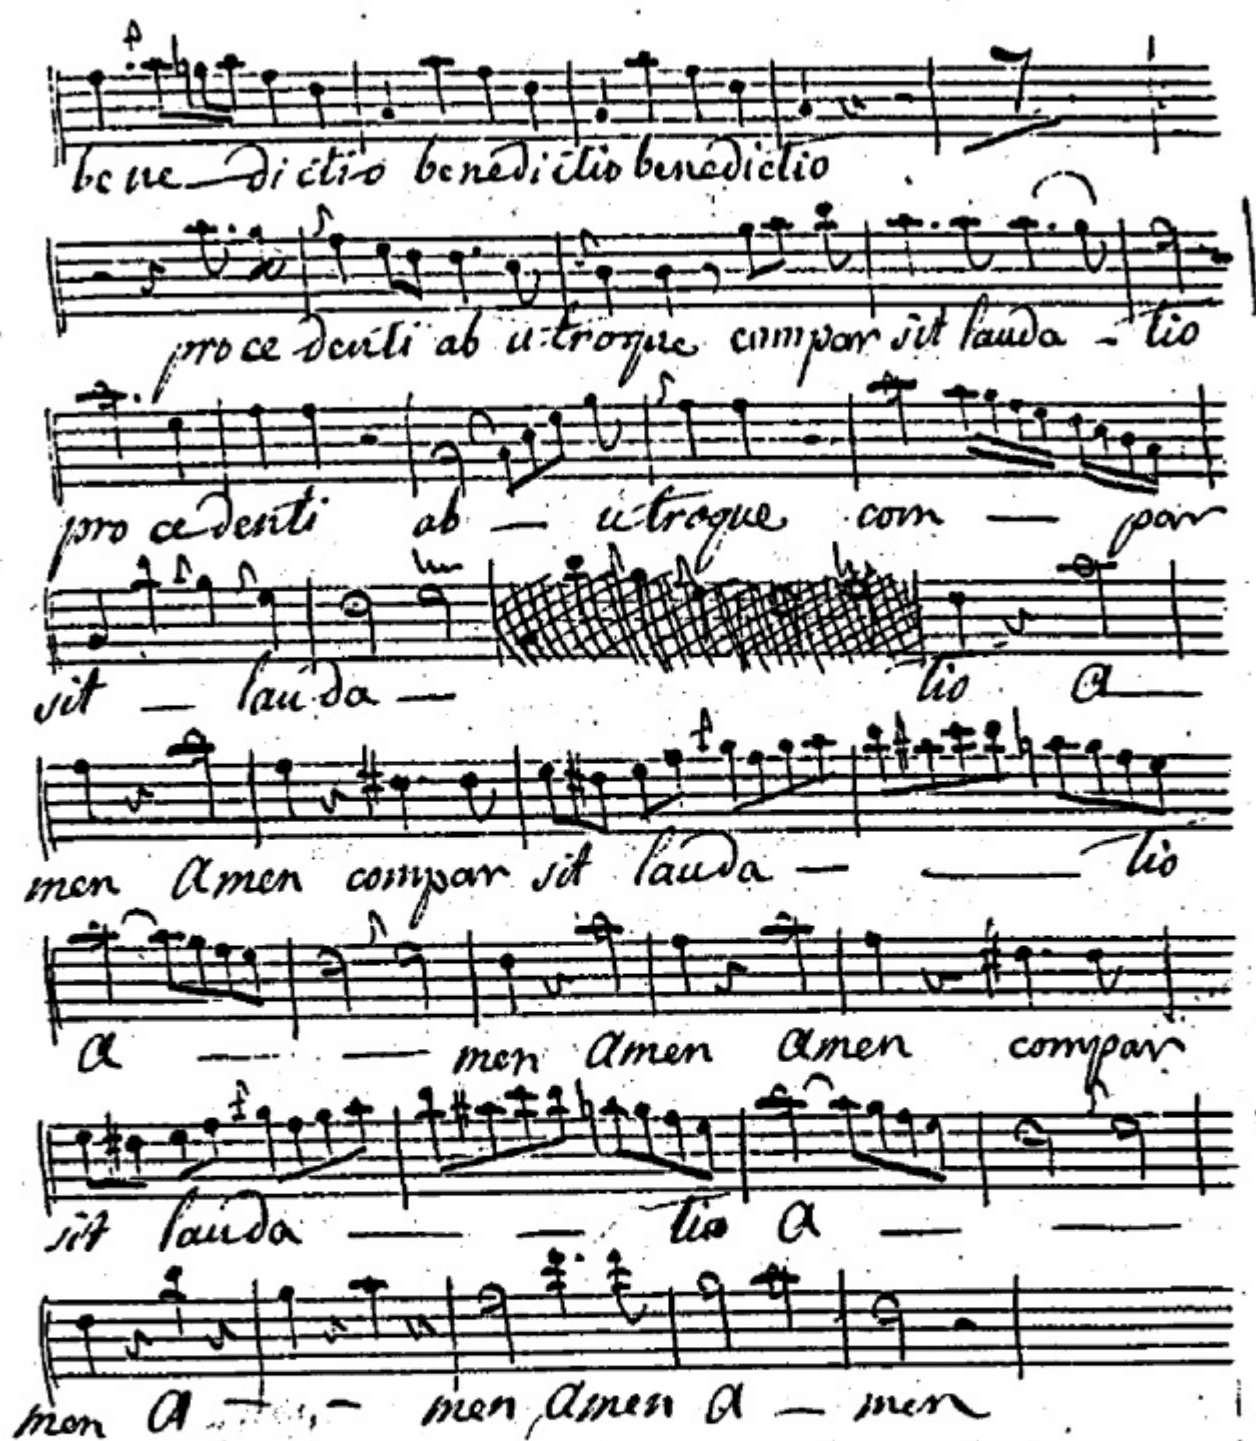 bene—dictio benedictio benedictio
7
procedenti ab u-troque compar sit lauda - tio
procedenti ab — utroque com — par
sit — lauda — tio A—
men Amen compar sit lauda — — tio
A — — men Amen Amen compar
sit lauda — — tio A — —
men A - - men Amen A — men